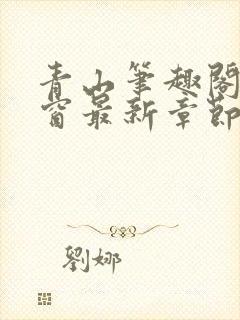 青山筆趣閣
窗最新章節
劉娜